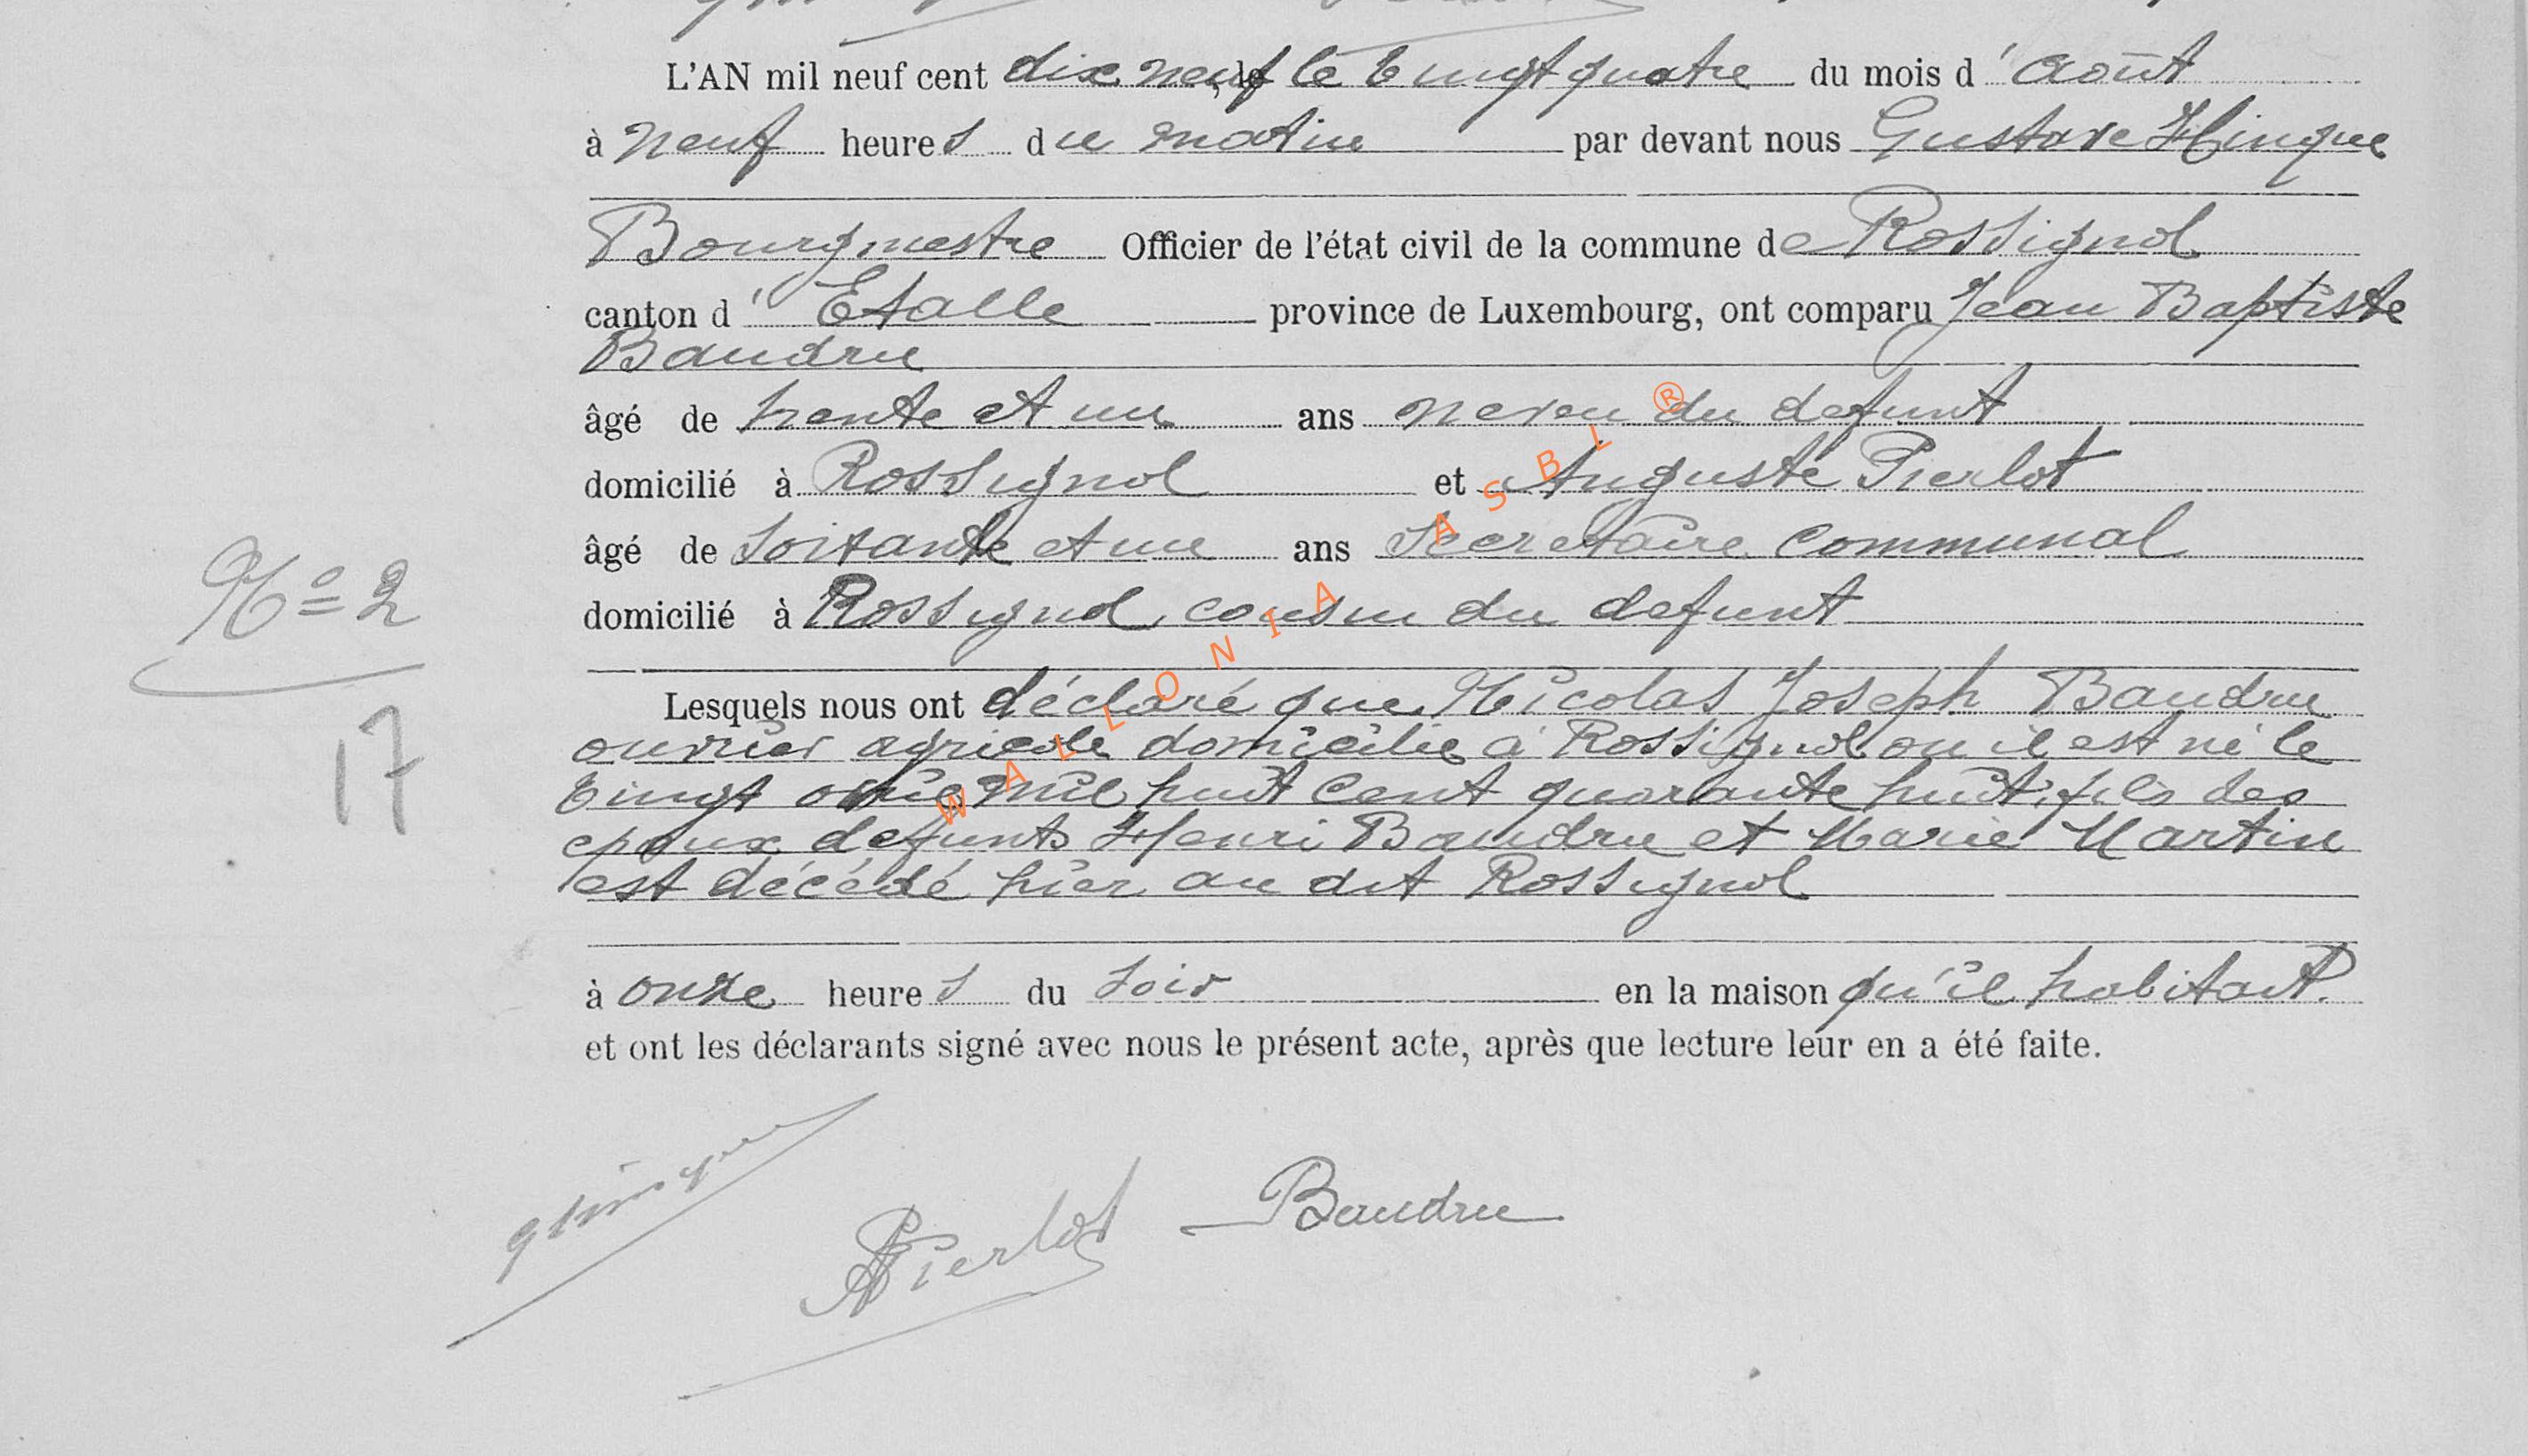 L'AN mil neuf cent dix neuf le vingt quatre du mois d'Août
à neuf heures du matin par devant nous Gustave Hinque
Bourgmestre Officier de l'état civil de la commune de Rossignol
canton d'Etalle province de Luxembourg, ont comparu Jean Baptiste
Baudru
âgé de trente et un ans neveu du defunt
domicilié à Rossignol et Auguste Pierlot
âgé de soixante et un ans Secretaire communal
domicilié à Rossignol, cousin du defunt
N° 2
Lesquels nous ont déclaré que Nicolas Joseph Baudru
17
ouvrier agricole domicilié à Rossignol ou il est né le
vingt mil huit cent quarante huit, fils des
epoux defunts Henri Baudru et Marie Martin
est décédé hier au dit Rossignol
à onze heures du soir en la maison qu'il habitait.
et ont les déclarants signé avec nous le présent acte, après que lecture leur en a été faite.
GHinque
APierlot Baudru
WALLONIA ASBL ®